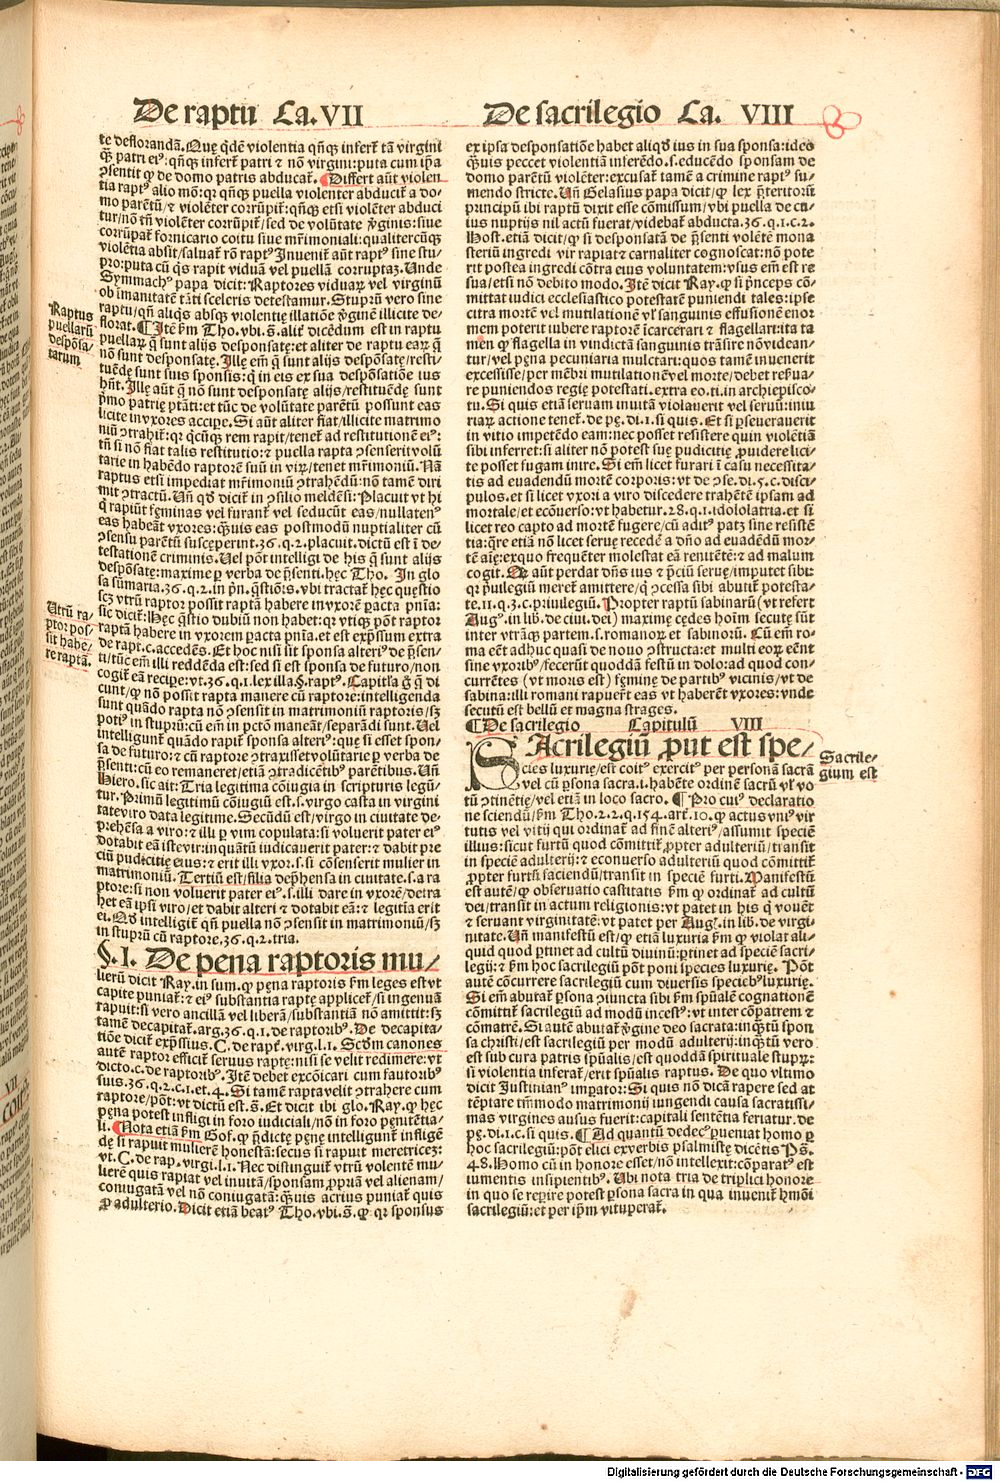 De raptu Ca. VII
te deflorandā. Que q̄dē violentia qn̄qꝫ inferť tā virgini
qꝫ patri ei⁹: qn̄qꝫ inferť patri ⁊ nō virgini: puta cum ip̄a
ꝯsentit ꝙ de domo patris abducať. ¶ Differt aūt violen
tia rapt⁹ alio mō: qꝛ qn̄qꝫ puella violenter abduciť a do⸗
mo parētū/ ⁊ violēter corrūpiť: qn̄qꝫ etsi violēter abduci
tur/ nō tn̄ violēter corrūpiť/ sed de volūtate v̓ginis: siue
corrūpať fornicario coitu siue mr̄imoniali: qualitercūqꝫ
violētia absit/ saluať rō rapt⁹. Inueniť aūt rapt⁹ sine stu⸗
pro: puta cū q̄s rapit viduā vel puellā corruptaꝫ. Unde
Symmach⁹ papa dicit: Raptores viduaꝝ vel virginū
ob īmanitatē tāti sceleris detestamur. Stuprū vero sine
raptu/ qn̄ aliq̄s absqꝫ violentię illatiōe v̓ginē illicite de⸗
florat. ¶ Itē ẜm Tho. vbi. s̄. aliť dicēdum est in raptu
puellaꝝ q̄ sunt alijs desponsatę: et aliter de raptu eaꝝ q̄
nō sunt desponsatę. Ille em̄ q̄ sunt alijs despōsatę/ resti/
tuēdę sunt suis sponsis: q̄ in eis ex sua despōsatiōe ius
hn̄t. Ille aūt q̄ nō sunt desponsatę alijs/ restituēdę sunt
p̓mo patrię ptāti: et tūc de volūtate parētū possunt eas
licite in vxores accipe. Si aūt aliter fiat/ illicite matrimo
niū ꝯtrahiť: qꝛ q̓cūqꝫ rem rapit/ teneť ad restitutionē ei⁹:
tn̄ si nō fiat talis restitutio: ⁊ puella rapta ꝯsenserit volū
tarie in habēdo raptorē suū in viꝝ/ tenet mr̄imoniū. Nā
raptus etsi impediat mr̄imoniū ꝯtrahēdū: nō tamē diri
mit ꝯtractū. Un̄ qď diciť in ꝯsilio meldēsi: Placuit vt hi
q̄ rapiūt fęminas vel furanť vel seducūt eas/ nullaten⁹
eas habeāt vxores: q̄uis eas postmodū nuptialiter cū
ꝯsensu parētū susceperint. 36. q. 2. placuit. dictū est ī de⸗
testationē criminis. Uel pōt intelligi de his q̄ sunt alijs
despōsatę: maxime ꝑ verba de p̄senti. hęc Tho. In glo
sa sūmaria. 36. q. 2. in pn̄. q̄stiōis. vbi tractať hęc quęstio
scꝫ vtrū raptor possit raptā habere in vxorē ꝑacta pn̄ia:
sic diciť: Hęc q̄stio dubiū non habet: qꝛ vtiqꝫ pōt raptor
raptā habere in vxorem ꝑacta pn̄ia. et est exp̄ssum extra
de rapt. c. accedēs. Et hoc nisi sit sponsa alteri⁹ de p̄sen⸗
ti/ tūc em̄ illi reddēda est: sed si est sponsa de futuro/ non
cogiť eā recipe: vt. 36. q. 1. lex illa. §. rapt⁹. Capit̓la g̊ q̄ di
cunt/ ꝙ nō possit rapta manere cū raptore: intelligenda
sunt quādo rapta nō ꝯsensit in matrimoniū raptoris/ sꝫ
poti⁹ in stuprū: cū em̄ in pctō maneāt/ separādi sunt. Uel
intelligunť quādo rapiť sponsa alteri⁹: quę si esset spon/
sa de futuro: ⁊ cū raptore ꝯtraxisset volūtarie ꝑ verba de
p̄senti: cū eo remaneret/ etiā ꝯtradicētib⁹ parētibus. Un̄
Hiero. sic ait: Tria legitima cōiugia in scripturis legū/
tur. Primū legitimū cōiugiū est. s. virgo casta in virgini
tate viro data legitime. Secūdū est/ virgo in ciuitate de⸗
prehēsa a viro: ⁊ illi ꝑ vim copulata: si voluerit pater ei⁹
dotabit eā iste vir: inquātū iudicauerit pater: ⁊ dabit pre
ciū pudicitię eius: ⁊ erit illi vxor. s. si cōsenserit mulier in
matrimoniū. Tertiū est/ filia dep̄hensa in ciuitate. s. a ra
ptore: si non voluerit pater ei⁹. s. illi dare in vxorē/ detra
het eā ipsi viro/ et dabit alteri ⁊ dotabit eā: ⁊ legitīa erit
ei. Qď intelligiť qn̄ puella nō ꝯsensit in matrimoniū/ sꝫ
in stuprū cū raptore. 36. q. 2. tria.
§. I. De pena raptoris mu/
lierū dicit Ray. in sum. ꝙ pęna raptoris ẜm leges est vt
capite puniať: ⁊ ei⁹ substantia raptę appliceť/ si ingenuā
rapuit: si vero ancillā vel liberā/ substantiā nō amittit: sꝫ
tamē decapitať. arg. 36. q. 1. de raptorib⁹. De decapita⸗
tiōe diciť exp̄ssius. C. de rapť. virg. l. 1. Scďm canones
autē raptor efficiť seruus raptę: nisi se velit redimere: vt
dicto. c. de raptorib⁹. Itē debet excōicari cum fautorib⁹
suis. 36. q. 2. c. 1. et. 4. Si tamē rapta velit ꝯtrahere cum
raptore/ pōt: vt dictū est. s̄. Et dicit ibi glo. Ray. ꝙ hęc
pęna potest infligi in foro iudiciali/ nō in foro pęnitētia/
li. ¶ Nota etiā ẜm Gof. ꝙ p̄dictę pęnę intelligunť infligē
dę si rapuit mulierē honestā: secus si rapuit meretricēꝫ:
vt. C. de rap. virgi. l. 1. Nec distinguiť vtrū volentē mu⸗
lierē quis rapiat vel inuitā/ sponsam ꝓpriā vel alienam/
coniugatā vel nō coniugatā: q̄uis acrius puniať quis
ꝓ adulterio. Dicit etiā beat⁹ Tho. vbi. s̄. ꝙ qꝛ sponsus
Raptus
puellarū
despōsa⸗
tarum
Utrū ra⸗
ptor pos⸗
sit habe⸗
re raptā.
De sacrilegio Ca. VIII
ex ipsa desponsatiōe habet aliqď ius in sua sponsa: ideo
q̄uis peccet violentiā inferēdo. s. educēdo sponsam de
domo parētū violēter: excusať tamē a crimine rapt⁹ su⸗
mendo stricte. Un̄ Gelasius papa dicit/ ꝙ lex p̄teritoꝝ
principū ibi raptū dixit esse cōmissum/ vbi puella de cu⸗
ius nuptijs nil actū fuerat/ videbať abducta. 36. q. 1. c. 2.
Host. etiā dicit/ ꝙ si desponsatā de p̄senti volētē mona
steriū ingredi vir rapiat ⁊ carnaliter cognoscat: nō pote
rit postea ingredi cōtra eius voluntatem: vsus em̄ est re
sua/ etsi nō debito modo. Itē dicit Ray. ꝙ si p̄nceps cō⸗
mittat iudici ecclesiastico potestatē puniendi tales: ipse
citra mortē vel mutilationē vl̓ sanguinis effusionē enor
mem poterit iubere raptorē īcarcerari ⁊ flagellari: ita ta
men ꝙ flagella in vindictā sanguinis trāsire nō videan⸗
tur/ vel pęna pecuniaria mulctari: quos tamē inuenerit
excessisse/ per mēbri mutilationē vel morte/ debet reserua⸗
re puniendos regię potestati. extra eo. ti. in archiepisco⸗
tu. Si quis etiā seruam inuitā violauerit vel seruū: iniu
riaꝝ actione teneť. de pę. di. 1. si quis. Et si ꝑseuerauerit
in vitio impetēdo eam: nec posset resistere quin violētiā
sibi inferret: si aliter nō potest suę pudicitię ꝓuidere lici⸗
te posset fugam inire. Si em̄ licet furari ī casu necessita⸗
tis ad euadendū mortē corporis: vt de ꝯse. di. 5. c. disci⸗
pulos. et si licet vxori a viro discedere trahētē ipsam ad
mortale/ et ecōuerso: vt habetur. 28. q. 1. idololatria. et si
licet reo capto ad mortē fugere/ cū adit⁹ patꝫ sine resistē
tia: q̄re etiā nō licet seruę recedē a dn̄o ad euadēdū mor⸗
tē aīę: ex quo frequēter molestat eā renitētē: ⁊ ad malum
cogit. Qꝛ aūt perdat dn̄s ius ⁊ p̄ciū seruę/ imputet sibi:
qꝛ p̓uilegiū mereť amittere/ q̄ ꝯcessa sibi abutiť potesta⸗
te. 11. q. 3. c. priuilegiū. Propter raptū sabinarū (vt refert
Aug⁹. in lib. de ciui. dei) maxime cędes hoīm secutę sūt
inter vtrāqꝫ partem. s. romanoꝝ et sabinorū. Cū em̄ ro⸗
ma eēt adhuc quasi de nouo ꝯstructa: et multi eoꝝ eēnt
sine vxorib⁹/ fecerūt quoddā festū in dolo: ad quod con⸗
currētes (vt moris est) fęminę de partib⁹ vicinis/ vt de
sabina: illi romani rapuerť eas vt haberēt vxores: vnde
secutū est bellū et magna strages.
¶ De sacrilegio Capitulū VIII
SAcrilegiū ꝓut est spe⸗
cies luxurię/ est coit⁹ exercit⁹ per personā sacrā
vel cū ꝑsona sacra. i. habēte ordinē sacrū vl̓ vo
tū ꝯtinētię/ vel etiā in loco sacro. ¶ Pro cui⁹ declaratio
ne sciendū/ ẜm Tho. 2. 2. q. 154. arť. 10. ꝙ actus vni⁹ vir
tutis vel vitij qui ordinať ad finē alteri⁹/ assumit speciē
illius: sicut furtū quod cōmittiť ꝓpter adulteriū/ transit
in speciē adulterij: ⁊ econuerso adulteriū quod cōmittiť
ꝓpter furtū faciendū/ transit in speciē furti. Manifestū
est autē/ ꝙ obseruatio castitatis ẜm ꝙ ordinať ad cultū
dei/ transit in actum religionis: vt patet in his q̄ vouēt
⁊ seruant virginitatē: vt patet per Aug⁹. in lib. de virgi⸗
nitate. Un̄ manifestū est/ ꝙ etiā luxuria ẜm ꝙ violat ali⸗
quid quod ꝑtinet ad cultū diuinū: ꝑtinet ad speciē sacri⸗
legij: ⁊ ẜm hoc sacrilegiū pōt poni species luxurię. Pōt
autē cōcurrere sacrilegiū cum diuersis specieb⁹ luxurię.
Si em̄ abutať ꝑsona ꝯiuncta sibi ẜm sp̄ualē cognationē
cōmittiť sacrilegiū ad modū incest⁹: vt inter cōpatrem ⁊
cōmatrē. Si autē abutať v̓gine deo sacrata: inq̄tū spon
sa christi/ est sacrilegiū per modū adulterij: inq̄tū vero
est sub cura patris sp̄ualis/ est quoddā spirituale stuprꝫ:
si violentia inferať/ erit sp̄ualis raptus. De quo vltimo
dicit Justinian⁹ impator: Si quis nō dicā rapere sed at
tēptare tm̄modo matrimonij iungendi causa sacratissi⸗
mas virgines ausus fuerit: capitali sentētia feriatur. de
pę. di. 1. c. si quis. ¶ Ad quantū dedec⁹ ꝑueniat homo ꝑ
hoc sacrilegiū: pōt elici ex verbis psalmistę dicētis Ps̄.
48. Homo cū in honore esset/ nō intellexit: cōparat⁹ est
iumentis insipientib⁹. Ubi nota tria de triplici honore
in quo se repire potest ꝑsona sacra in qua inueniť hmōi
sacrilegiū: et per ip̄m vituperať.
Sacrile⸗
gium est
Digitalisierung gefördert durch die Deutsche Forschungsgemeinschaft - DFG